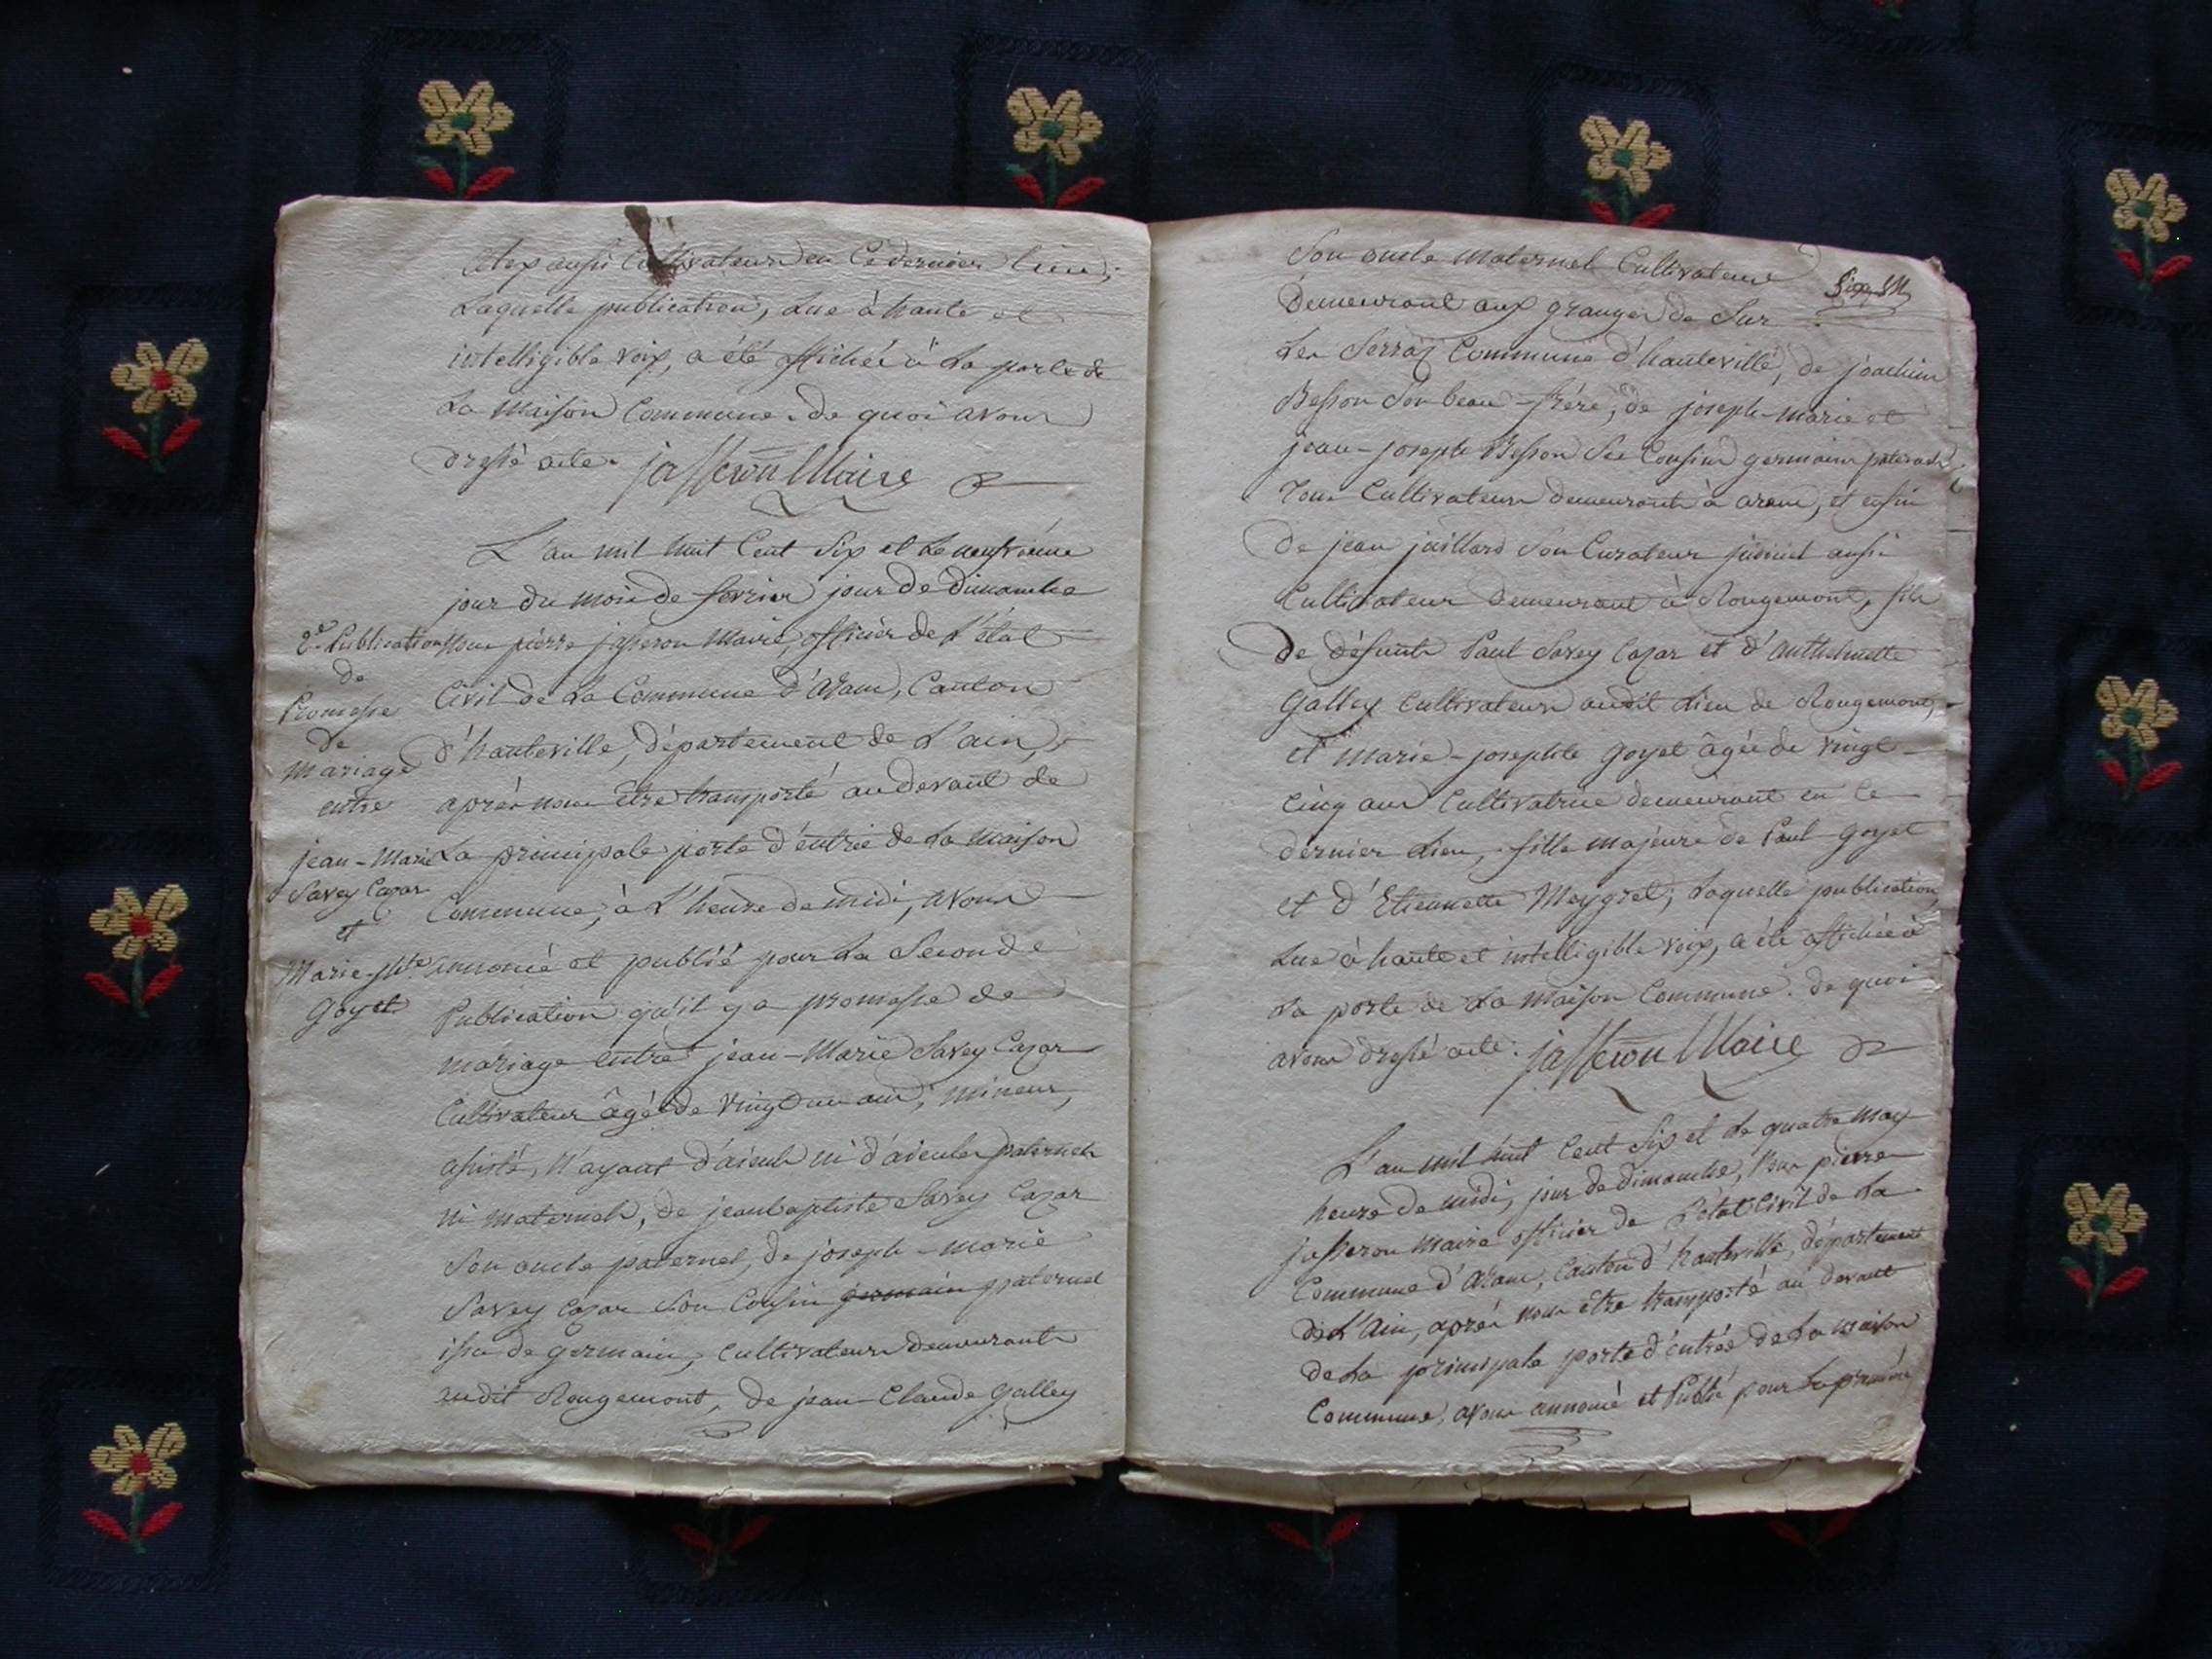 aussi Cultivateurs en Ce dernier Lieu;
Laquelle publication, Lue à haute et
intelligible voix, a été affichée à La porte de
La Maison Commune. de quoi avons
dressé acte. jasseron Maire
L'an mil huit Cent Six et Le neuvième
jour du mois de fevrier jour de Dimanche
Nous pierre jasseron Maire, officier de L'état
Civil de La Commune d'aranc, Canton
d'hauteville, département de L'ain,
après nous être transporté au devant de
La principale porte d'entrée de La Maison
Commune, à L'heure de midi, avons
annoncé et publié pour La Seconde
Publication qu'il y a promesse de
mariage entre jean-Marie Savey Cazar
Cultivateur âgé de vingt un ans, mineur,
assisté, n'ayant d'aieuls ni d'aieules paternels
ni maternels, de jean baptiste Savey Cazar
Son oncle paternel, de joseph-marie
Savey Cazar Son Cousin germain paternel
issu de germain, Cultivateurs demeurants
audit Rougemont, de jean-Claude Galley
2e Publication
de
Promesse
de
Mariage
entre
jean-Marie
Savey Cazar
et
Marie-jhte
Goyet
Son oncle Maternel Cultivateur
Demeurant aux granges de Sur
Les Serraz Commune d'hauteville, de joachim
Besson Son beau-frère, de joseph-marie et
jean-joseph Besson Ses Cousins germains paternels
Tous Cultivateurs demeurants à aranc, et enfin
De jean jaillard Son Curateur aussi
Cultivateur Demeurant à Rougemont, fils
De défunts Paul Savey Cazar et d'Anthelmette
Galley Cultivateurs audit Lieu de Rougemont,
et Marie-josephte Goyet âgée de vingt
Cinq ans Cultivatrice demeurant en Ce
dernier Lieu, fille majeure de Paul Goyet
et d'Etiennette Meygret; Laquelle publication,
Lue à haute et intelligible voix, a été affichée à
La porte de La Maison Commune. de quoi
avons dressé acte. jasseron Maire
L'an mil huit Cent Six et Le quatre may
heure de midi, jour de dimanche, Nous pierre
jasseron Maire officier de L'état Civil de La
Commune d'aranc, Canton d'hauteville, département
de L'Ain, après nous être transporté au devant
de La principale porte d'entrée de La Maison
Commune, avons annoncé et Publié pour La première